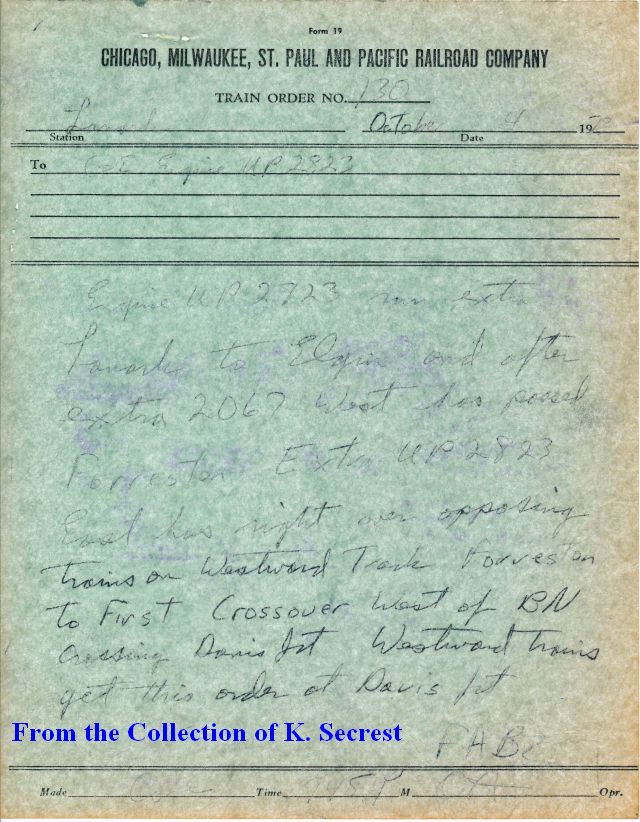 Form 19
CHICAGO, MILWAUKEE, ST. PAUL AND PACIFIC RAILROAD COMPANY
TRAIN ORDER NO. 130
Station October 4 Date 19
To C&E Engine UP 2823
Engine UP 2823 run extra
Lanark to Elgin and after
extra 2067 West has passed
Forreston Extra UP 2823
East has right over opposing
trains on Westward Track Forreston
to First Crossover West of BN
crossing Davis Jct Westward trains
get this order at Davis Jct
From the Collection of K. Secrest
Made Time M Opr.